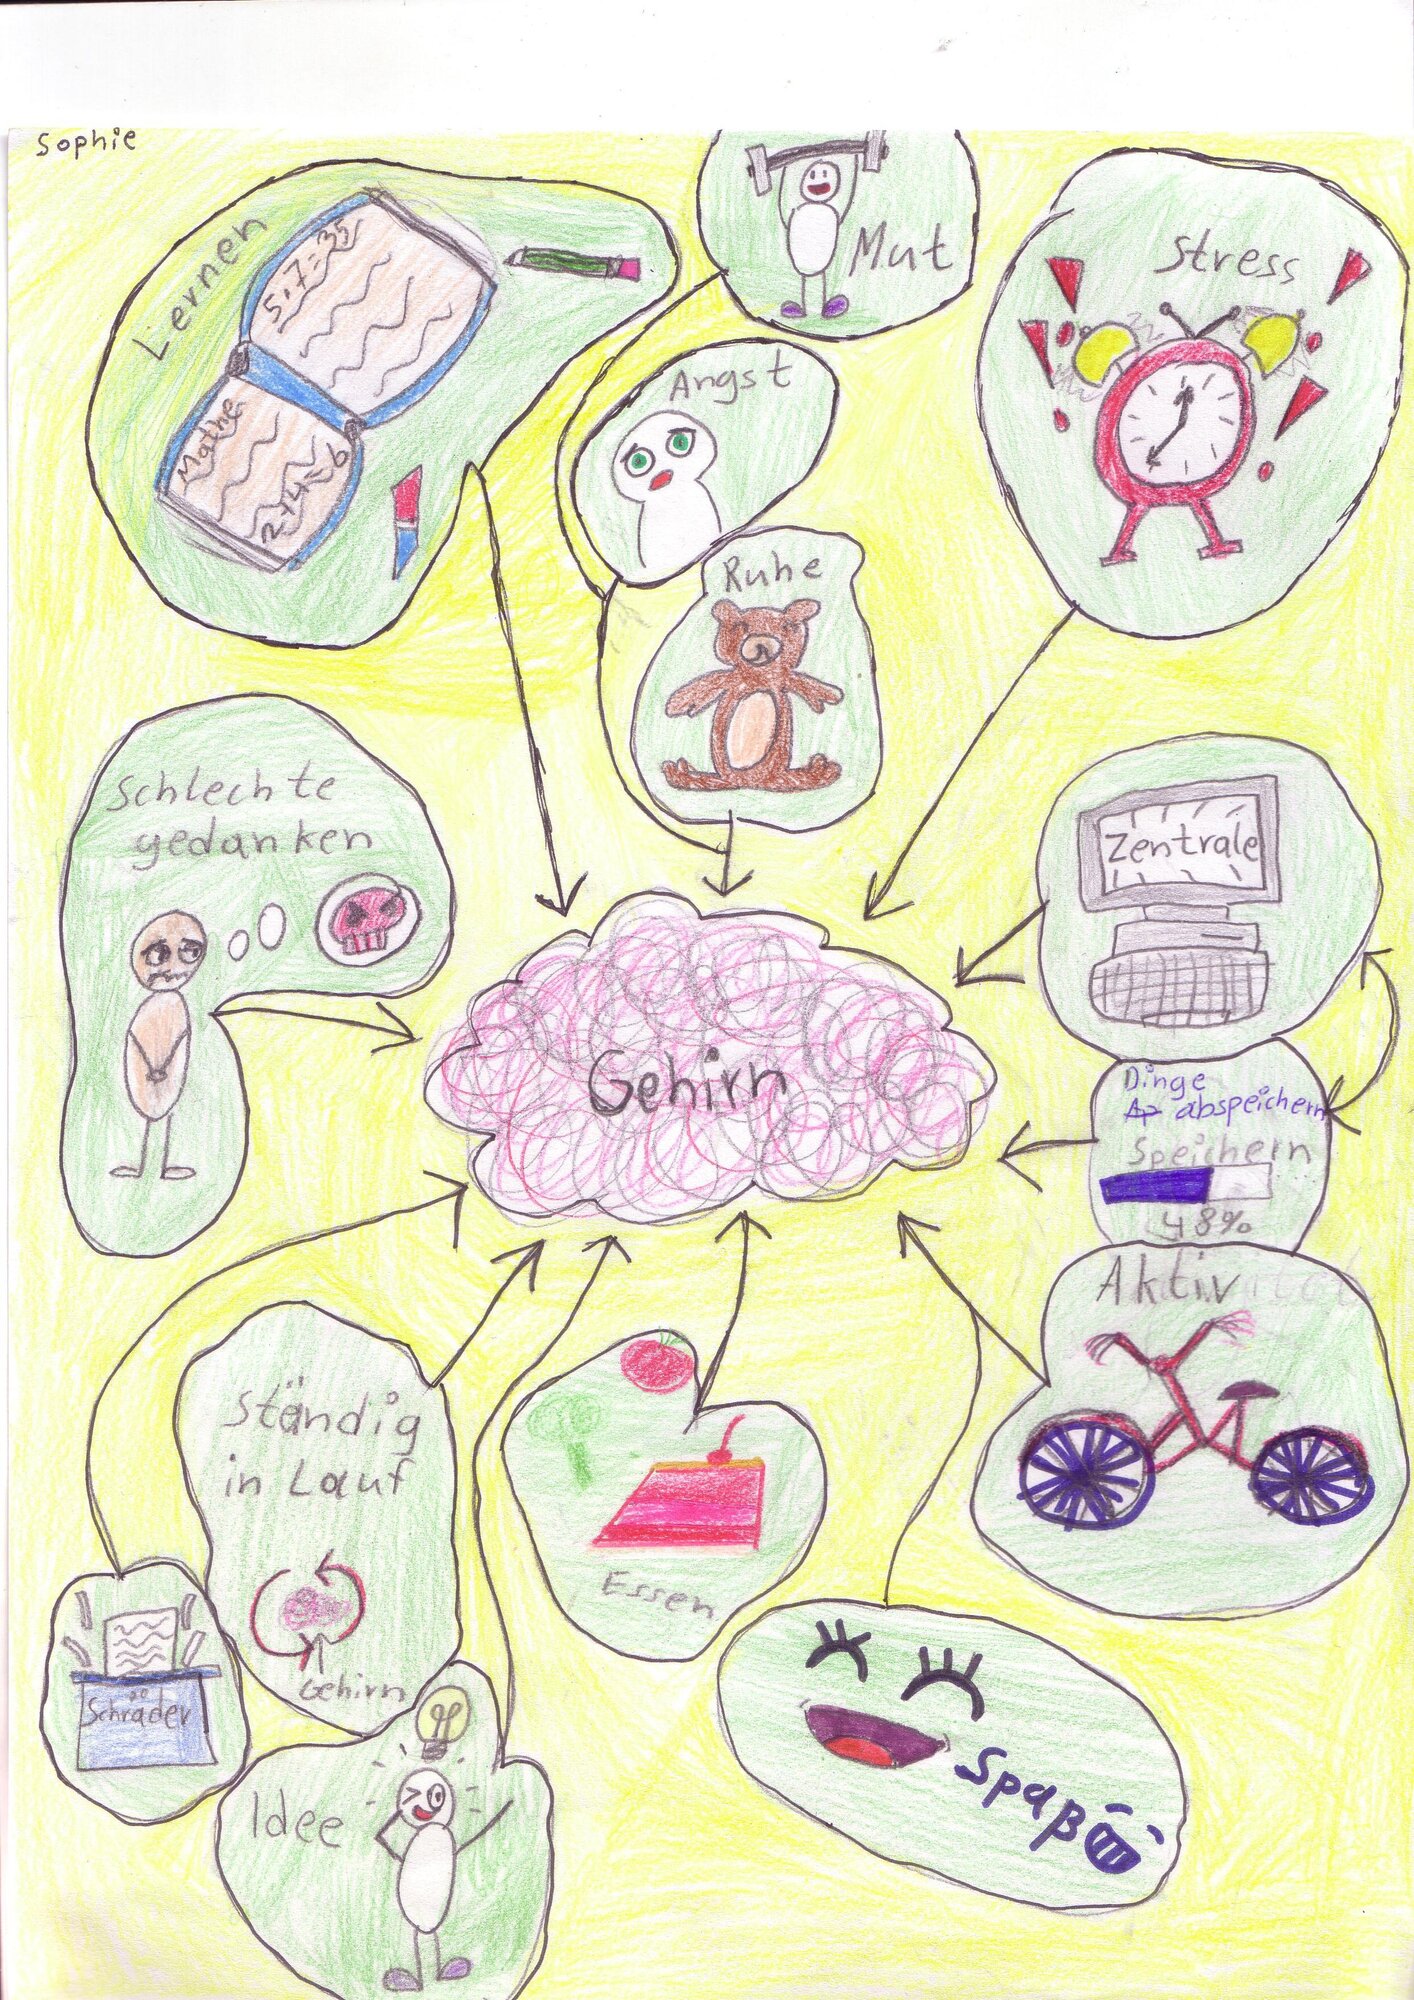 Sophie
Lernen
5·7=35
Mathe
2+4=6
Mut
Angst
Ruhe
Stress
Schlechte
gedanken
Zentrale
Gehirn
Dinge
abspeichern
Speichern
48%
Aktiv
Ständig
in Lauf
Gehirn
Essen
Schräder
Idee
Spaß